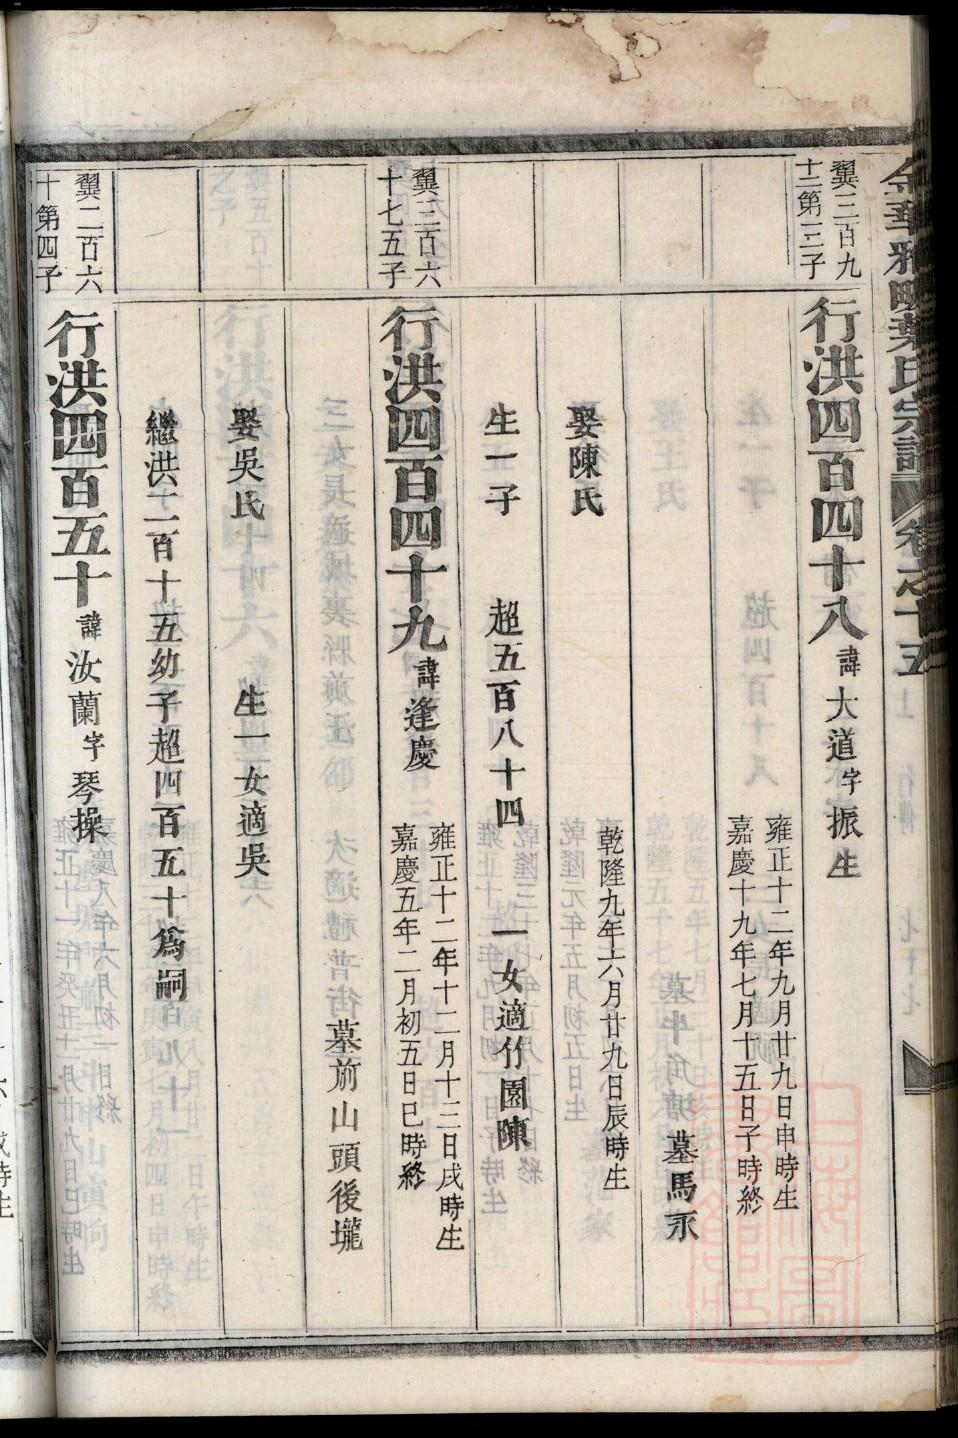 金華雅畈葉氏宗譜 卷之十五
翼三百九
十二第三子
行洪四百四十八 諱大道字振生
雍正十二年九月廿九日申時生
嘉慶十九年七月十五日子時終
墓馬永
娶陳氏
乾隆九年六月廿九日辰時生
生一子 超五百八十四 一女適竹園陳
翼三百六
十七五子
行洪四百四十九 諱逢慶
雍正十二年十二月十三日戌時生
嘉慶五年二月初五日巳時終
墓前山頭後壠
娶吳氏 生一女適吳
繼洪二百十五幼子超四百五十爲嗣
翼二百六
十第四子
行洪四百五十 諱汝蘭字琴操